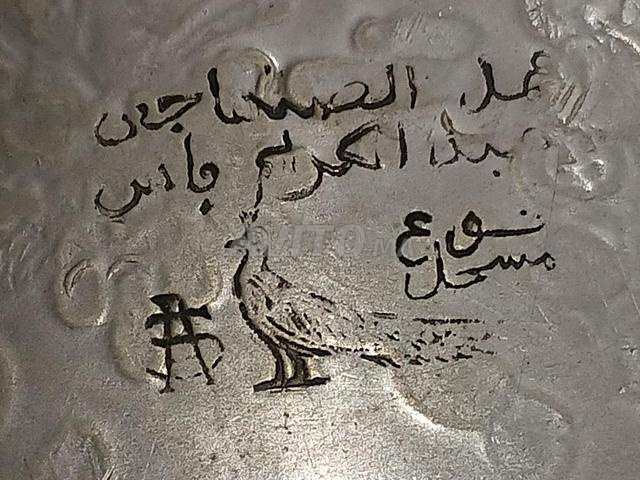 عمل الصنهاجي
عبد الكريم فاس
نوع
مسجل
AVITO.ma